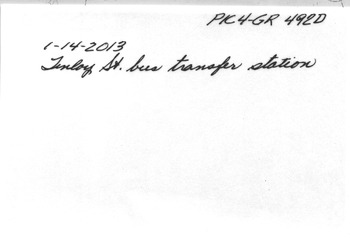 PK4-GR 492D
1-14-2013
Tinloy St. bus transfer station